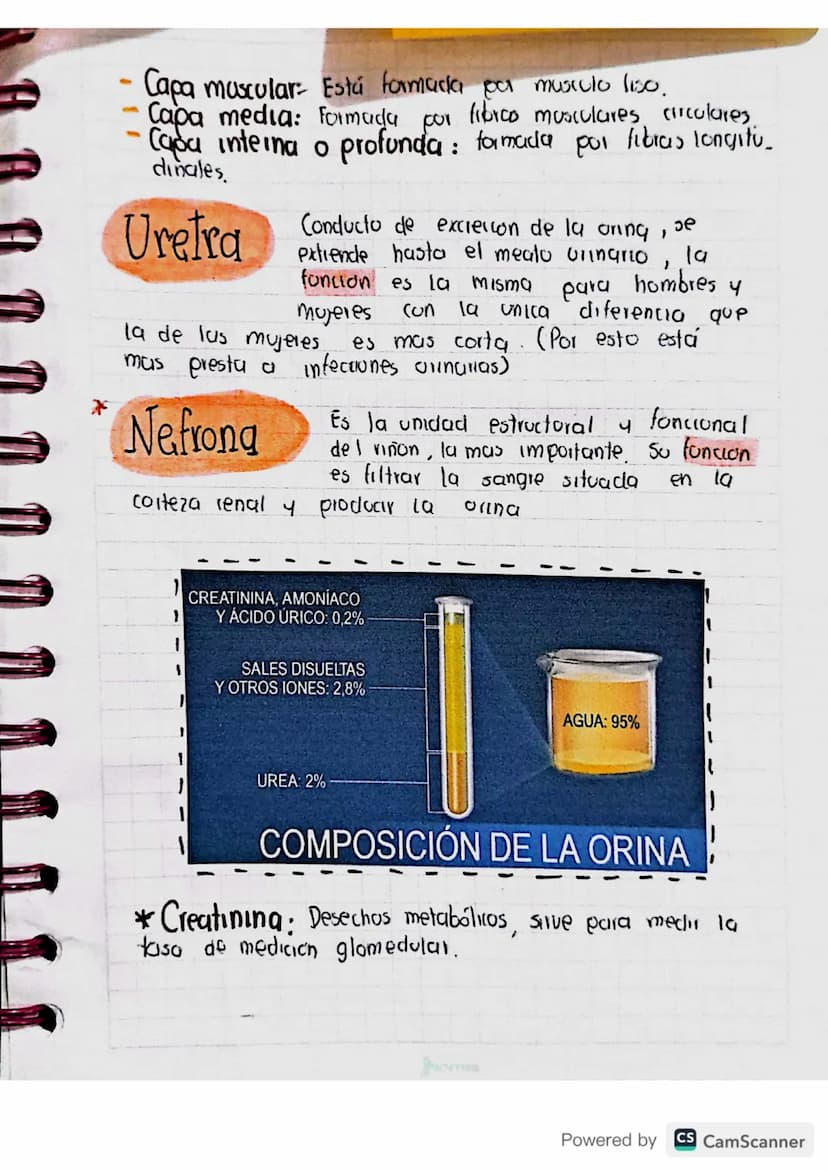 - Capa muscular- Está formada por musculo liso.
- Capa media: Formada por fibico musculares circulares.
- Capa interna o profunda: formada por fibras longitu-
dinales.
Uretra
Conducto de excreción de la orina, se
extiende hasta el meato urinario, la
función es la misma para hombres y
mujeres con la unica diferencia que
la de las mujeres es mas corta. (Por esto está
mas presta a infecciones urinarias)
* Nefrona
Es la unidad estructural y funcional
del riñon, la mas importante. Su función
es filtrar la sangre situada en la
corteza renal y producir la orina
CREATININA, AMONÍACO
Y ÁCIDO ÚRICO: 0,2%
SALES DISUELTAS
Y OTROS IONES: 2,8%
AGUA: 95%
UREA: 2%
COMPOSICIÓN DE LA ORINA
* Creatinina: Desechos metabólicos, sirve para medir la
tasa de medición glomedular.
Powered by CS CamScanner